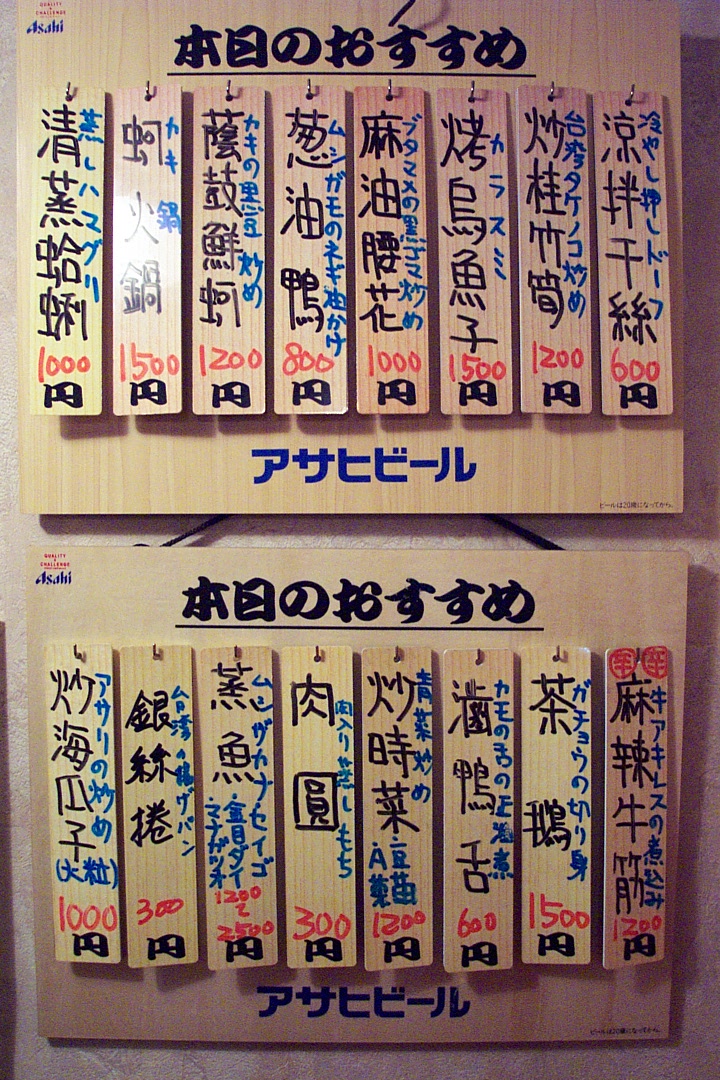 QUALITY & CHALLENGE
Asahi
本日のおすすめ
涼拌干絲
冷やし押しドーフ
600円
炒桂竹筍
台湾タケノコ炒め
1200円
烤烏魚子
カラスミ
1500円
麻油腰花
ブタマメの黒ゴマ炒め
1000円
葱油鴨
ムシガモのネギ油かけ
800円
蔭鼓鮮蚵
カキの黒豆炒め
1200円
蚵火鍋
カキ鍋
1500円
清蒸蛤蜊
蒸しハマグリ
1000円
アサヒビール
ビールは20歳になってから。
QUALITY & CHALLENGE
Asahi
本日のおすすめ
辛 辛
麻辣牛筋
牛アキレスの煮込み
1200円
茶鵝
ガチョウの切り身
1500円
滷鴨舌
カモの舌の正油煮
600円
炒時菜
青菜炒め
・豆苗
・A菜
1200円
肉圓
肉入り蒸しもち
300円
蒸魚
ムシザカナ・セイゴ
・金目ダイ
マナガツオ
1200〜2500円
銀絲捲
台湾の揚げパン
300円
炒海瓜子
アサリの炒め
(大粒)
1000円
アサヒビール
ビールは20歳になってから。